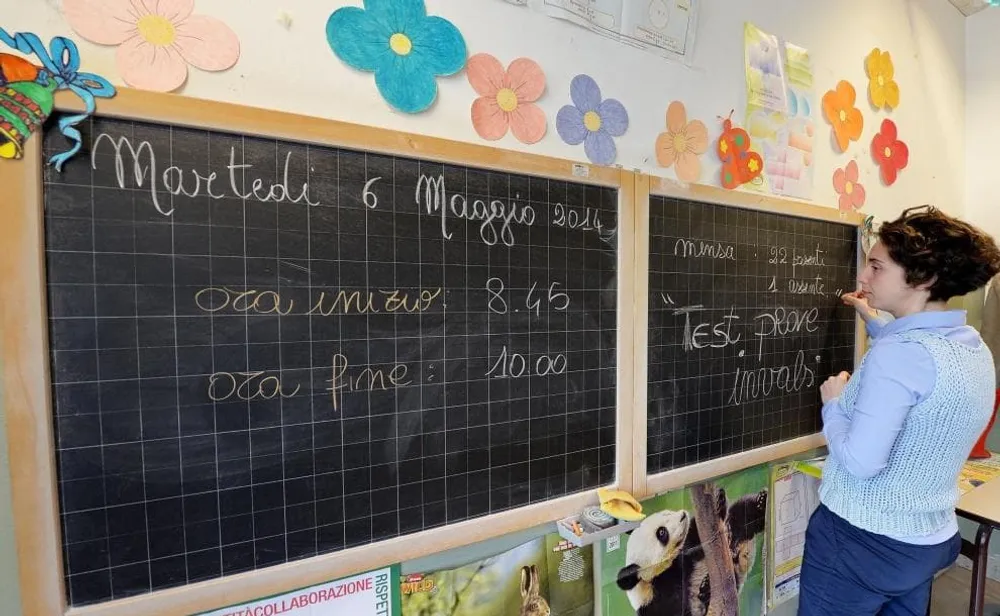 Martedi 6 Maggio 2014
ora inizio: 8.45
ora fine: 10 00
mensa : 22 presenti
1 assente
"Test prove
invalsi"
COLLABORAZIONE